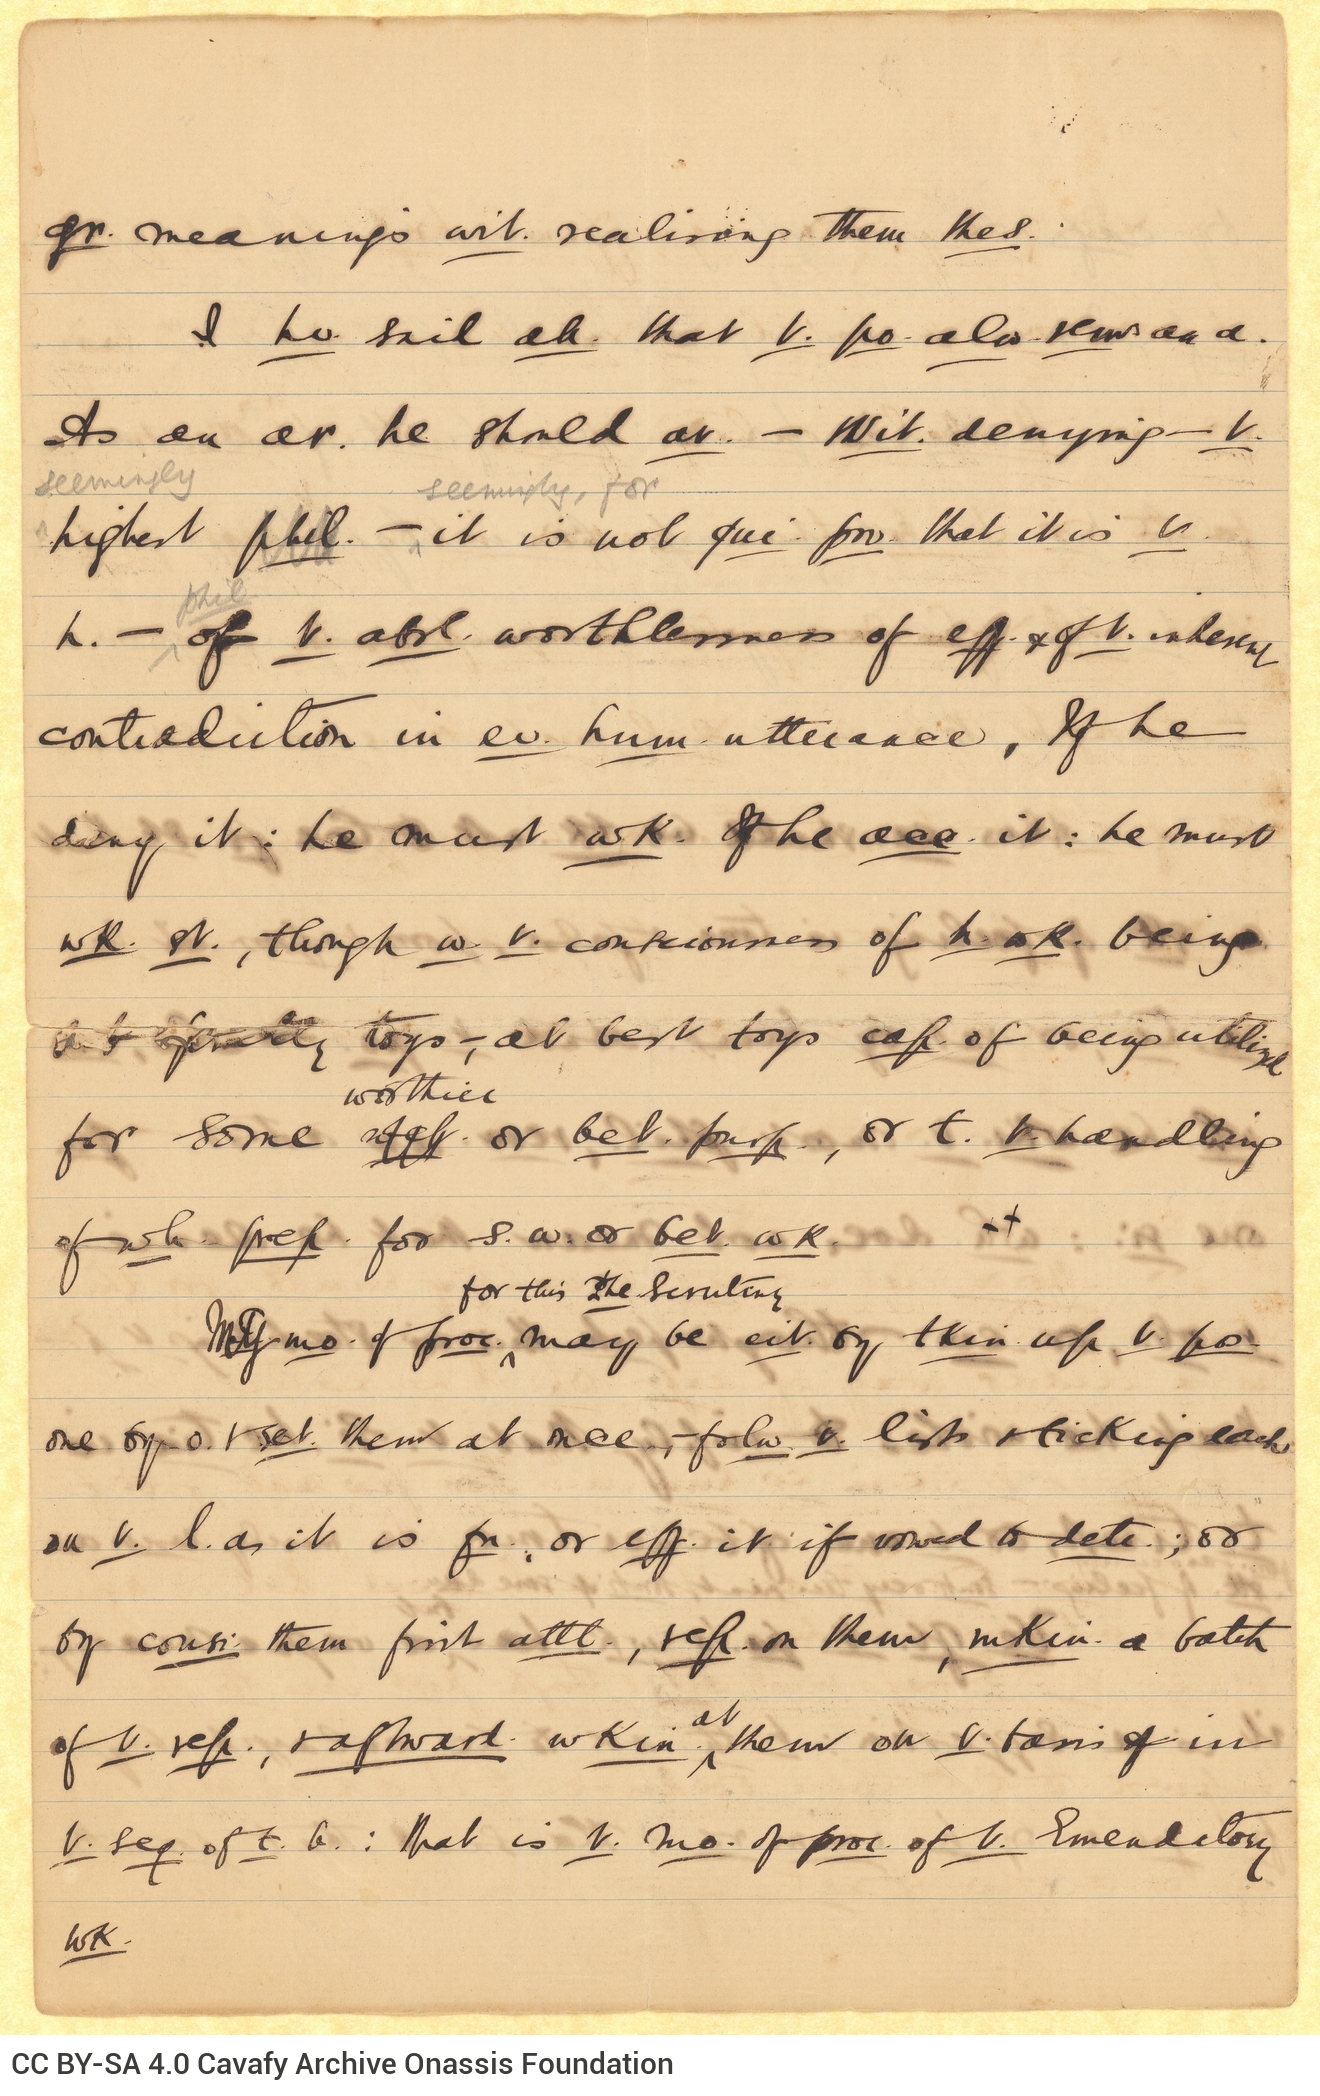 gr. meanings wit. realising them thes.
I hv. said ab. that t. po. alw. rem. an a.
As an ar. he should av. — Wit. denying — t.
seemingly seemingly, for
highest phil. — it is not qui. prov. that it is t.
phil
h. — of t. absl. worthlessness of eff. & of t. inherent
contradiction in ev. hum. utterance, If he
deny it: he must wk. If he acc. it: he must
wk. st., though w. t. consciousness of h. wk. being
toys —, at best toys cap. of being utilized
worthier
for some or bet. purp., or t. t. handling
of wh. prep. for s. w. or bet. wk. ++
for this The Scrutiny
My mo. of proc. may be eit. by tkin. up t. po.
one by o. & set. them at once, — folw. t. lists sticking each
on t. l. as it is fn., or eff. it if vowed to dete.; or
by consi. them first attt., refl. on them, mkin. a batch
at
of t. refl., & aftward. wkin. them on t. basis & in
t. seq. of t. b.: that is t. mo. of proc. of t. Emendatory
wk.
CC BY-SA 4.0 Cavafy Archive Onassis Foundation